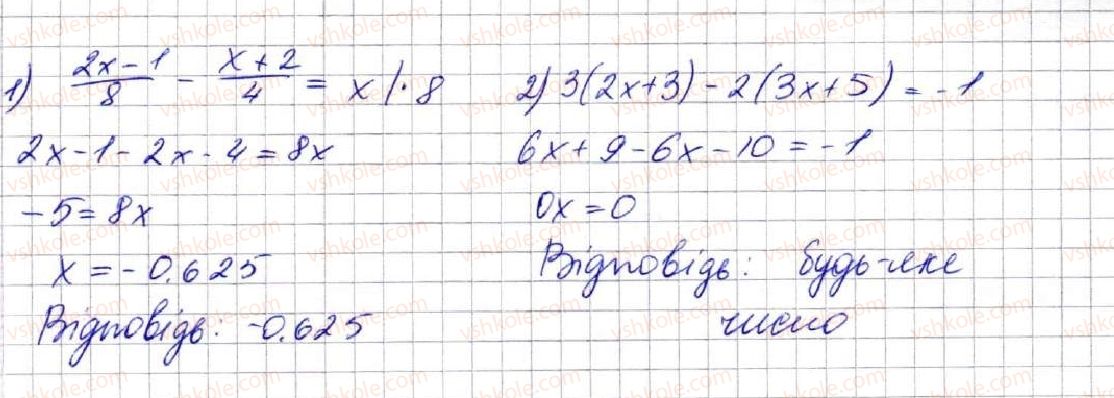 1) (2x-1)/8 - (x+2)/4 = x |·8
2x-1-2x-4=8x
-5=8x
x=-0.625
Відповідь: -0.625
2) 3(2x+3)-2(3x+5)=-1
6x+9-6x-10=-1
0x=0
Відповідь: будь-яке
число